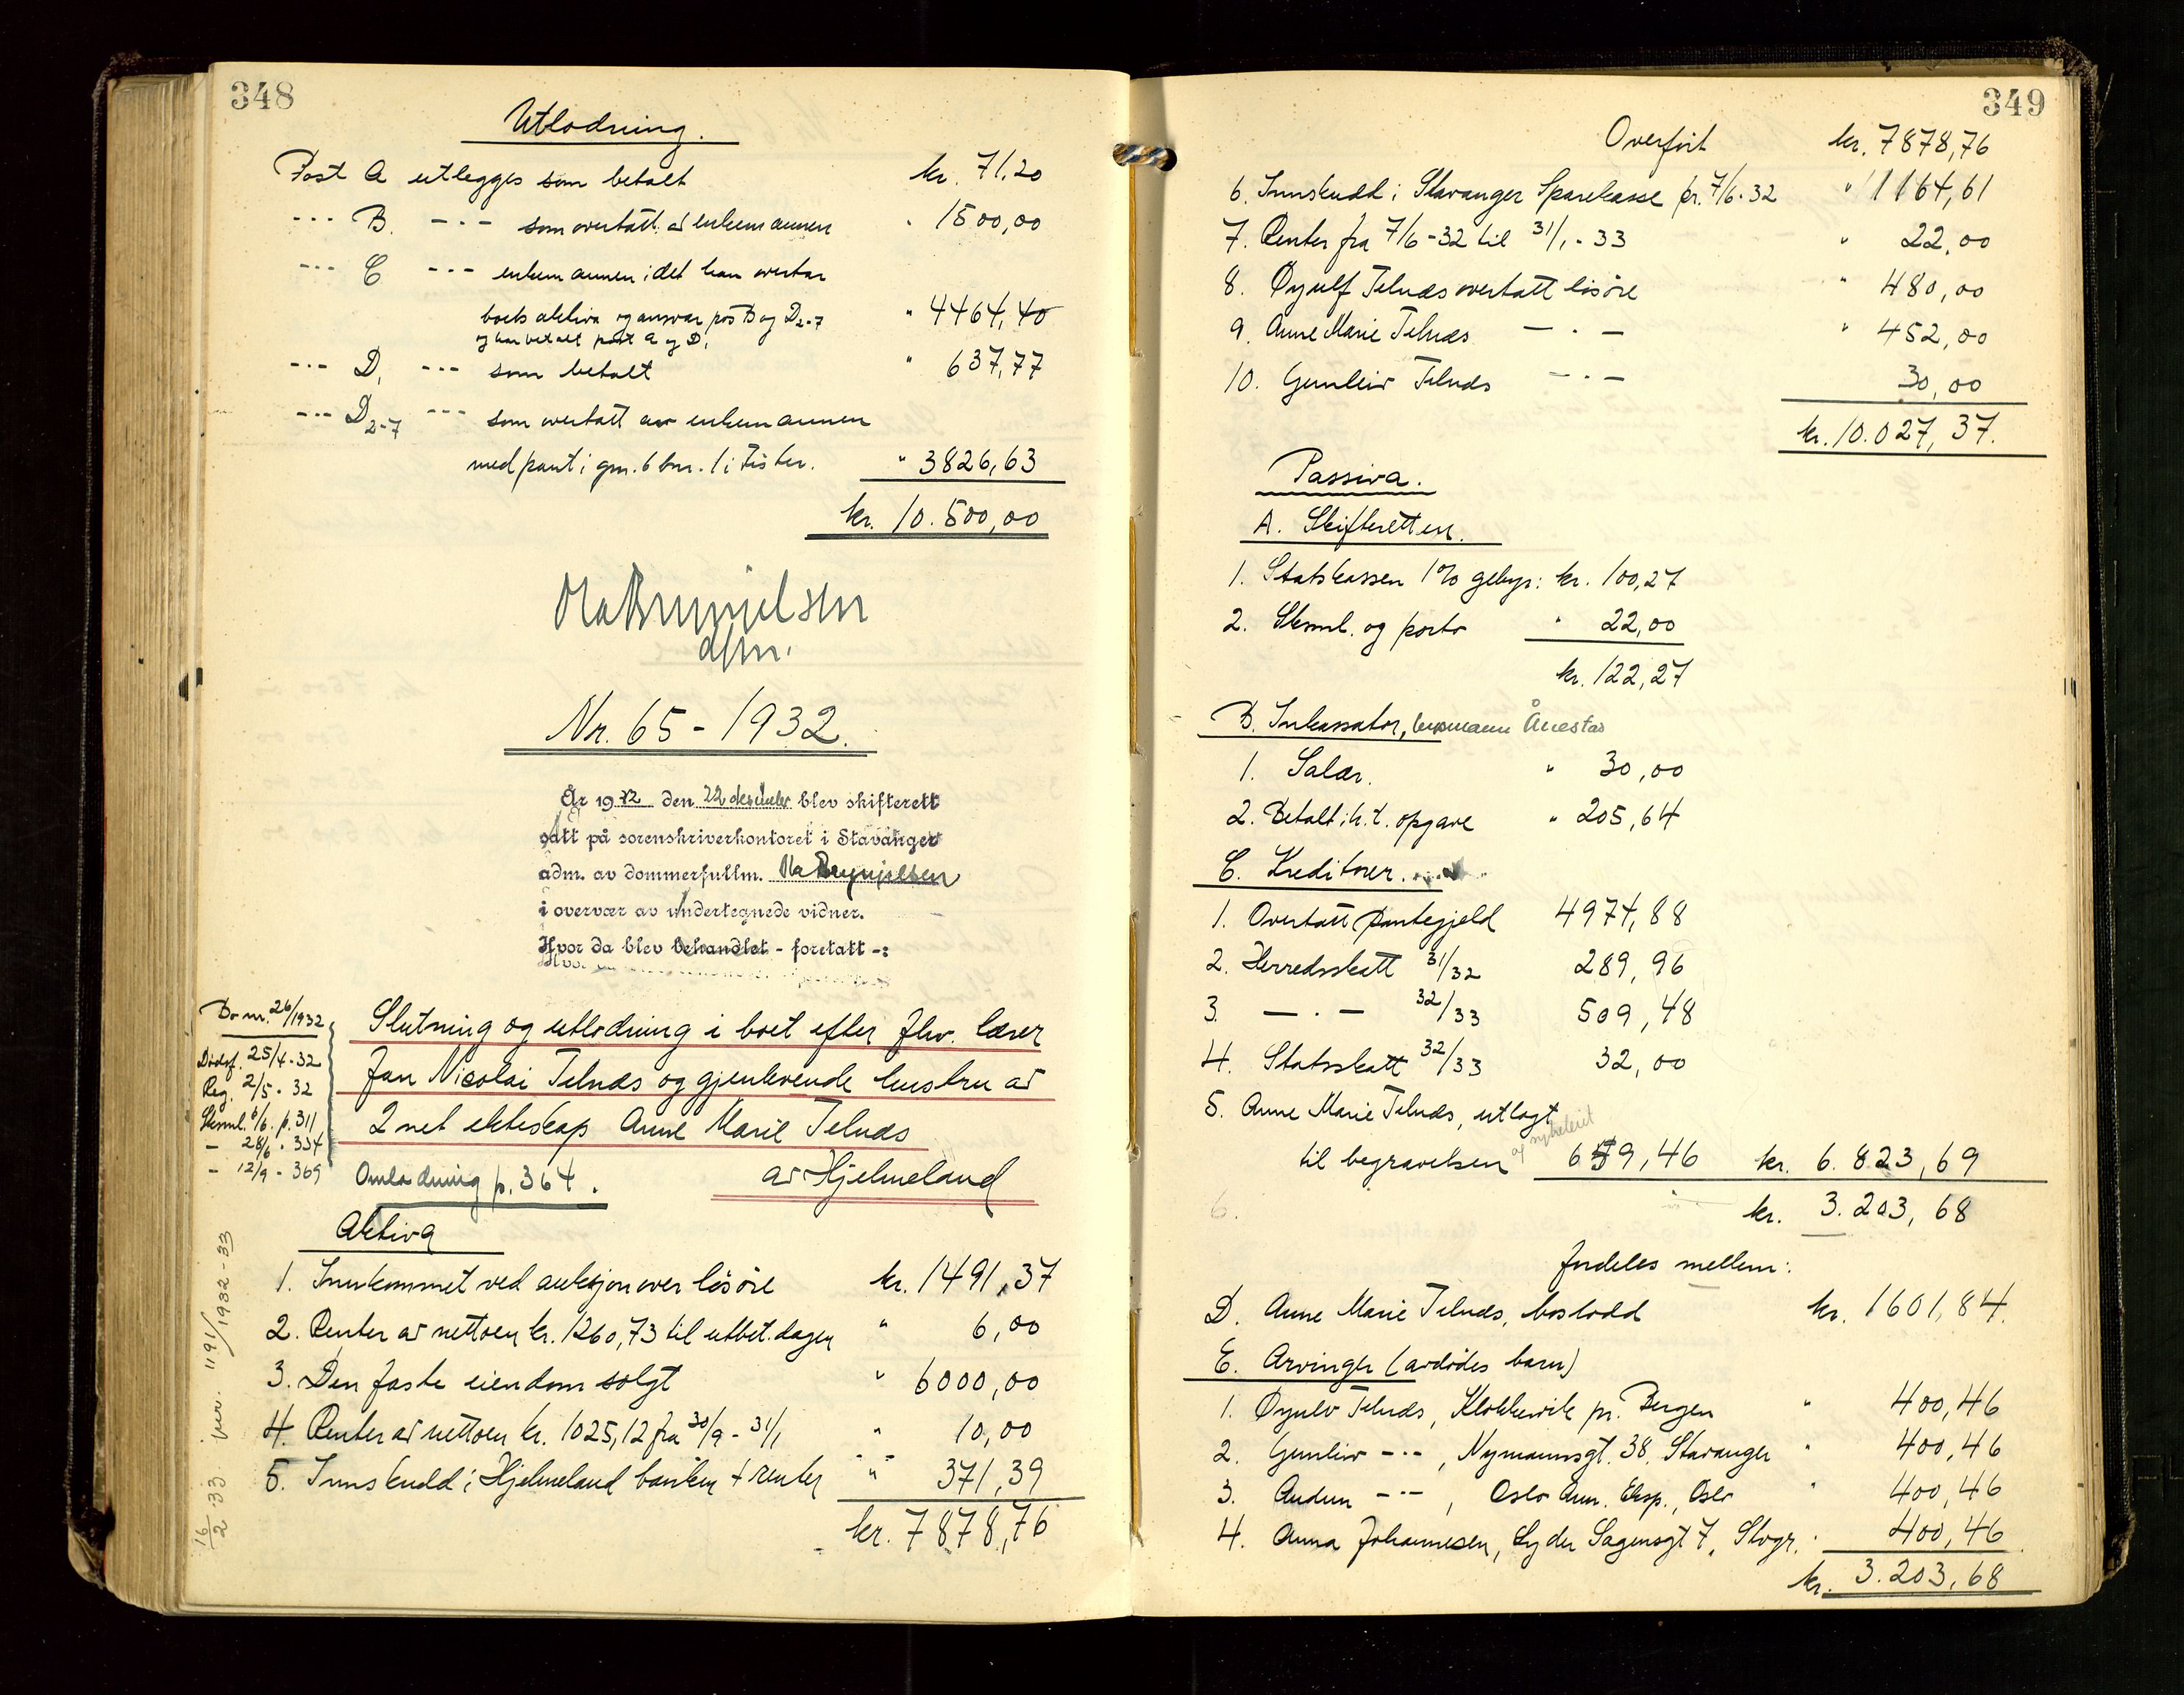 348
Utlodning.
Post A utlegges som betalt kr. 71.20
--- B. --- som overtatt av enkemannen " 1500,00
--- C --- enkemannen idet han overtar
boets aktiva og ansvar post B og D2-7 " 4464,40
og har betalt post A og D1
--- D1 --- som betalt " 637,77
--- D2-7 --- som overtatt av enkemannen
med pant i gnr. 6 bnr. 1 i Fister. " 3826,63
kr. 10.500,00
Ola Brynjelsen
dfm.
Nr. 65 - 1932.
År 1932 den 22 desember blev skifterett
satt på sorenskriverkontoret i Stavanger
adm. av dommerfullm. Ola Brynjelsen
i overvær av undertegnede vidner.
Hvor da blev behandlet - foretatt -:
Bo nr. 26/1932
Dødsf. 25/4-32
Reg. 2/5-32
Skrml. 6/6. p. 311
- 28/6 - 334
- 12/9 - 369
Slutning og utlodning i boet efter fhv. lærer
Jan Nicolai Telnds og gjenlevende hustru av
2net ekteskap Anne Marie Telnds
av Hjelmeland
Omlodning p. 364.
16/2 33 1191/1932-33
Aktiva
1. Innkommet ved auksjon over løsøre kr. 1491,37
2. Renter av nettoen kr. 1260,73 til utbet.dagen " 6,00
3. Den faste eiendom solgt " 6000,00
4. Renter av nettoen kr. 1025,12 fra 30/9 - 31/1 " 10,00
5. Innskudd i Hjelmeland banken + renter " 371,39
kr. 7878,76
349
Overført kr. 7878,76
6. Innskudd i Stavanger Sparekasse pr. 7/6-32 " 1164,61
7. Renter fra 7/6-32 til 31/1-33 " 22,00
8. Øyulf Telnds overtatt løsøre " 480,00
9. Anne Marie Telnds — · — " 452,00
10. Gunleiv Telnds — · — 30,00
kr. 10.027,37.
Passiva.
A. Skifteretten.
1. Statskassen 1% gebyr: kr. 100,27
2. Skrml. og porto " 22,00
kr. 122,27
B. Inkassator, lensmann Ånestad
1. Salær. " 30,00
2. Betalt i h. t. opgave " 205,64
C. Kreditorer.
1. Overtatt pantegjeld 4974,88
2. Herredsskatt 31/32 289,96
3. — · — 32/33 509,48
4. Statsskatt 32/33 32,00
5. Anne Marie Telnds, utlagt
til begravelsen 659,46 kr. 6.823,69
6. kr. 3.203,68
fordeles mellem:
D. Anne Marie Telnds, boslodd kr. 1601,84.
E. Arvinger (avdødes barn)
1. Øyulv Telnds, Klokkervik pr. Bergen " 400,46
2. Gunleiv -·-, Nymannsgt. 38, Stavanger " 400,46
3. Audun -·-, Oslo Ann. Eksp., Oslo " 400,46
4. Anna Johannesen, Lyder Sagensgt 7, Stvgr. " 400,46
kr. 3.203,68